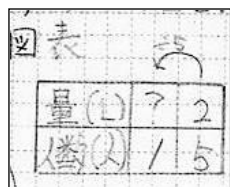 図 表
÷5
量(L) ? 2
人数(人) 1 5